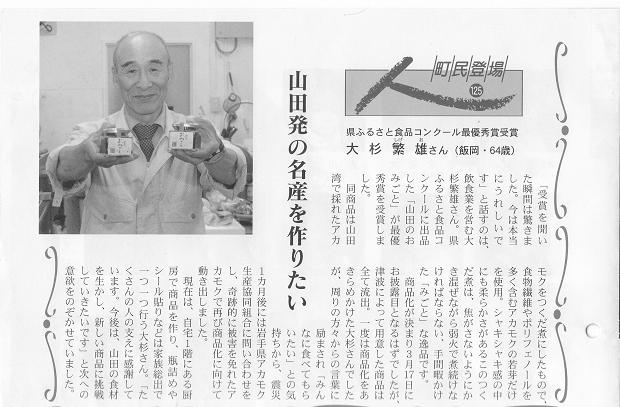 町民登場
人
125
県ふるさと食品コンクール最優秀賞受賞
大杉繁雄さん（飯岡・64歳）
山田発の名産を作りたい
「受賞を聞い
た瞬間は驚きま
した。今は本当
にうれしいで
す」と話すのは、
飲食業を営む大
杉繁雄さん。県
ふるさと食品コ
ンクールに出品
した「山田のお
みごと」が最優
秀賞を受賞しま
した。
同商品は山田
湾で採れたアカ
モクをつくだ煮にしたもので、
食物繊維やポリフェノールを
多く含むアカモクの若芽だけ
を使用。シャキシャキ感の中
にも柔らかさがあるこのつく
だ煮は、焦がさないようにか
き混ぜながら弱火で煮続けな
ければならない、手間暇かけ
た「みごと」な逸品です。
商品化が決まり3月17日に
お披露目となるはずでしたが、
津波によって用意した商品は
全て流出。一度は商品化をあ
きらめかけた大杉さんでした
が、周りの方々からの言葉に
励まされ「みん
なに食べてもら
いたい」との気
持ちから、震災
1カ月後には岩手県アカモク
生産協同組合に問い合わせを
し、奇跡的に被害を免れたア
カモクで再び商品化に向けて
動き出しました。
現在は、自宅1階にある厨
房で商品を作り、瓶詰めや
シール貼りなどは家族総出で
一つ一つ行う大杉さん。「た
くさんの人の支えに感謝して
います。今後は、山田の食材
を生かし、新しい商品に挑戦
していきたいです」と次への
意欲をのぞかせていました。